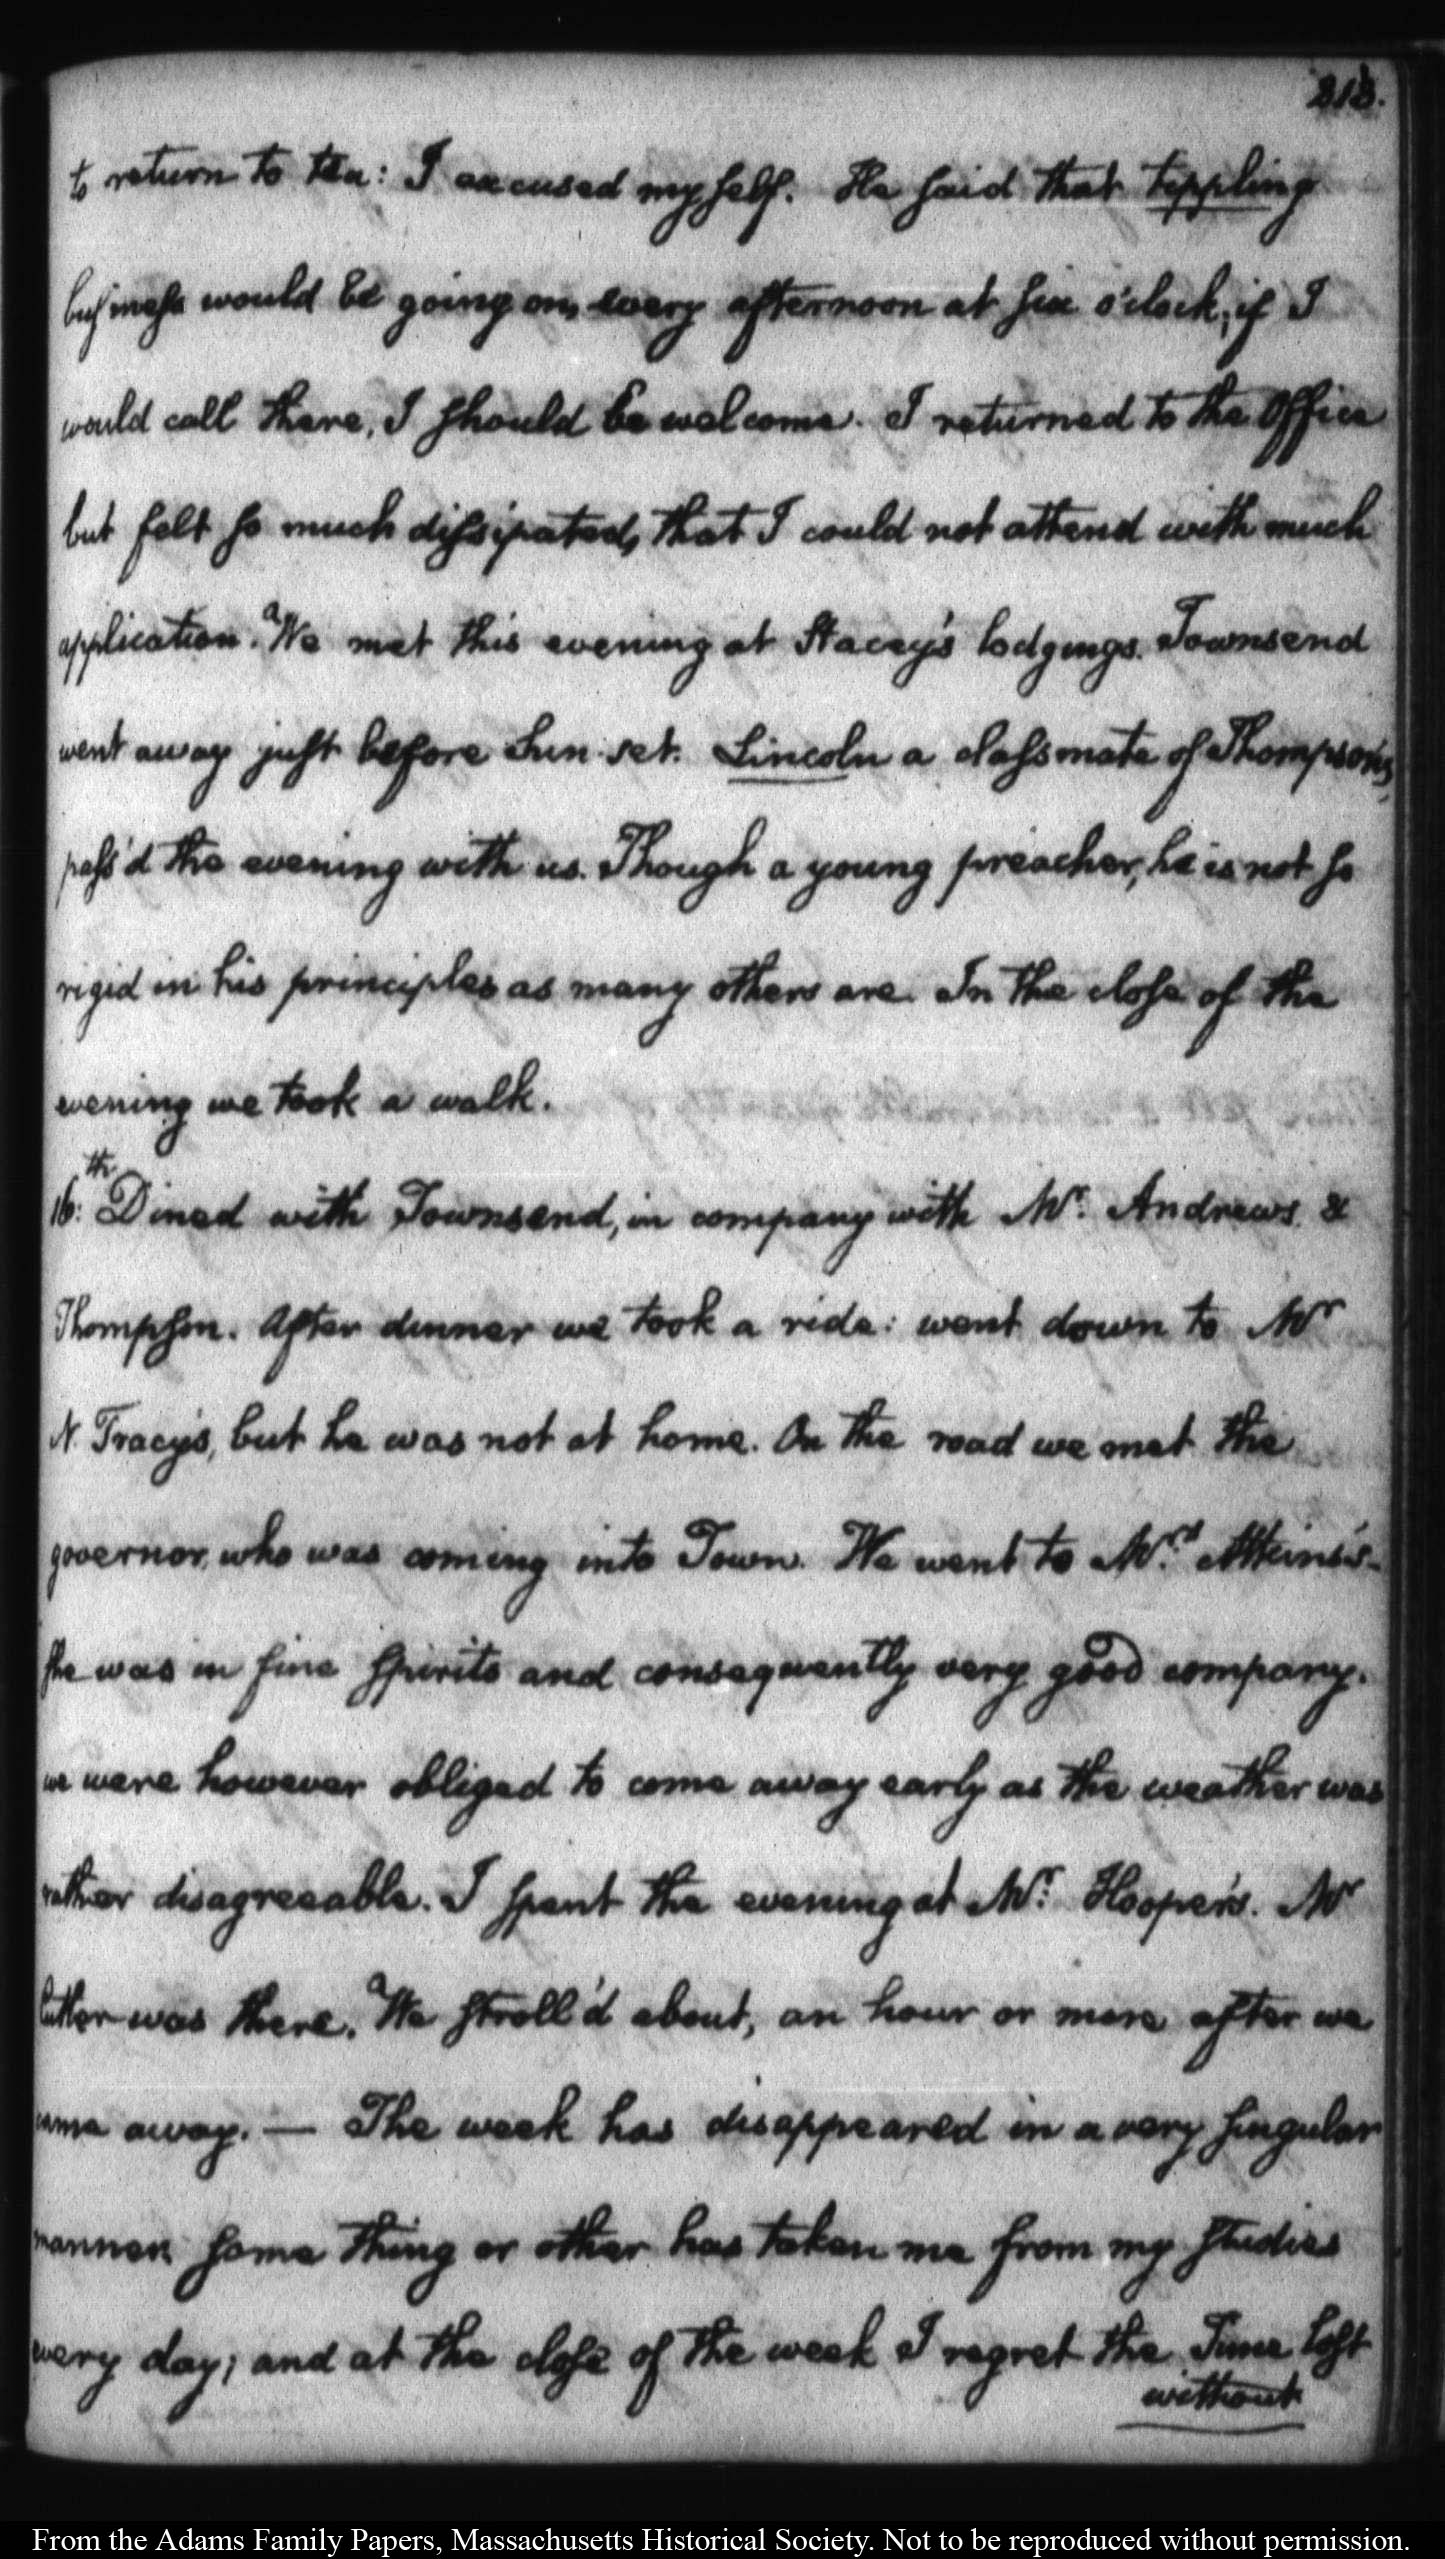 213.
to return to tea: I excused myself. He said that tippling
business would be going on, every afternoon at six o'clock, if I
would call there, I should be welcome. I returned to the Office
but felt so much dissipated, that I could not attend with much
application. We met this evening at Stacey's lodgings. Townsend
went away just before Sun-set. Lincoln a classmate of Thompson's,
pass'd the evening with us. Though a young preacher, he is not so
rigid in his principles as many others are. In the close of the
evening we took a walk.
16:th Dined with Townsend, in company with Mr. Andrews &
Thompson. After dinner we took a ride: went down to Mr
N. Tracy's, but he was not at home. On the road we met the
governor, who was coming into Town. We went to Mrs. Atkins's
she was in fine spirits and consequently very good company.
we were however obliged to come away early as the weather was
rather disagreeable. I spent the evening at Mr. Hooper's. Mr
Cutler was there. We stroll'd about, an hour or more after we
came away. — The week has disappeared in a very singular
manner. Some thing or other has taken me from my studies
every day; and at the close of the week I regret the Time lost
without
From the Adams Family Papers, Massachusetts Historical Society. Not to be reproduced without permission.